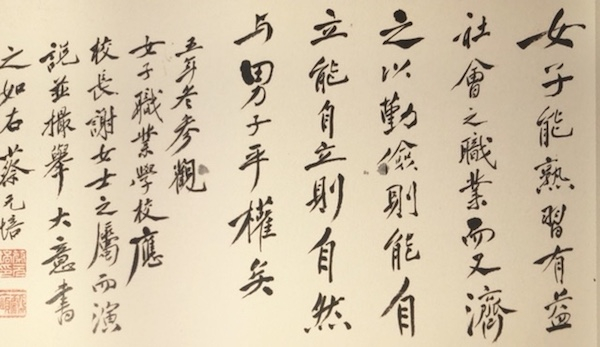 女子能熟習有益
社會之職業而又濟
之以勤儉則能自
立能自立則自然
与男子平權矣
五年冬參觀
女子職業學校應
校長謝女士之屬而演
説並撮舉大意書
之如右 蔡元培